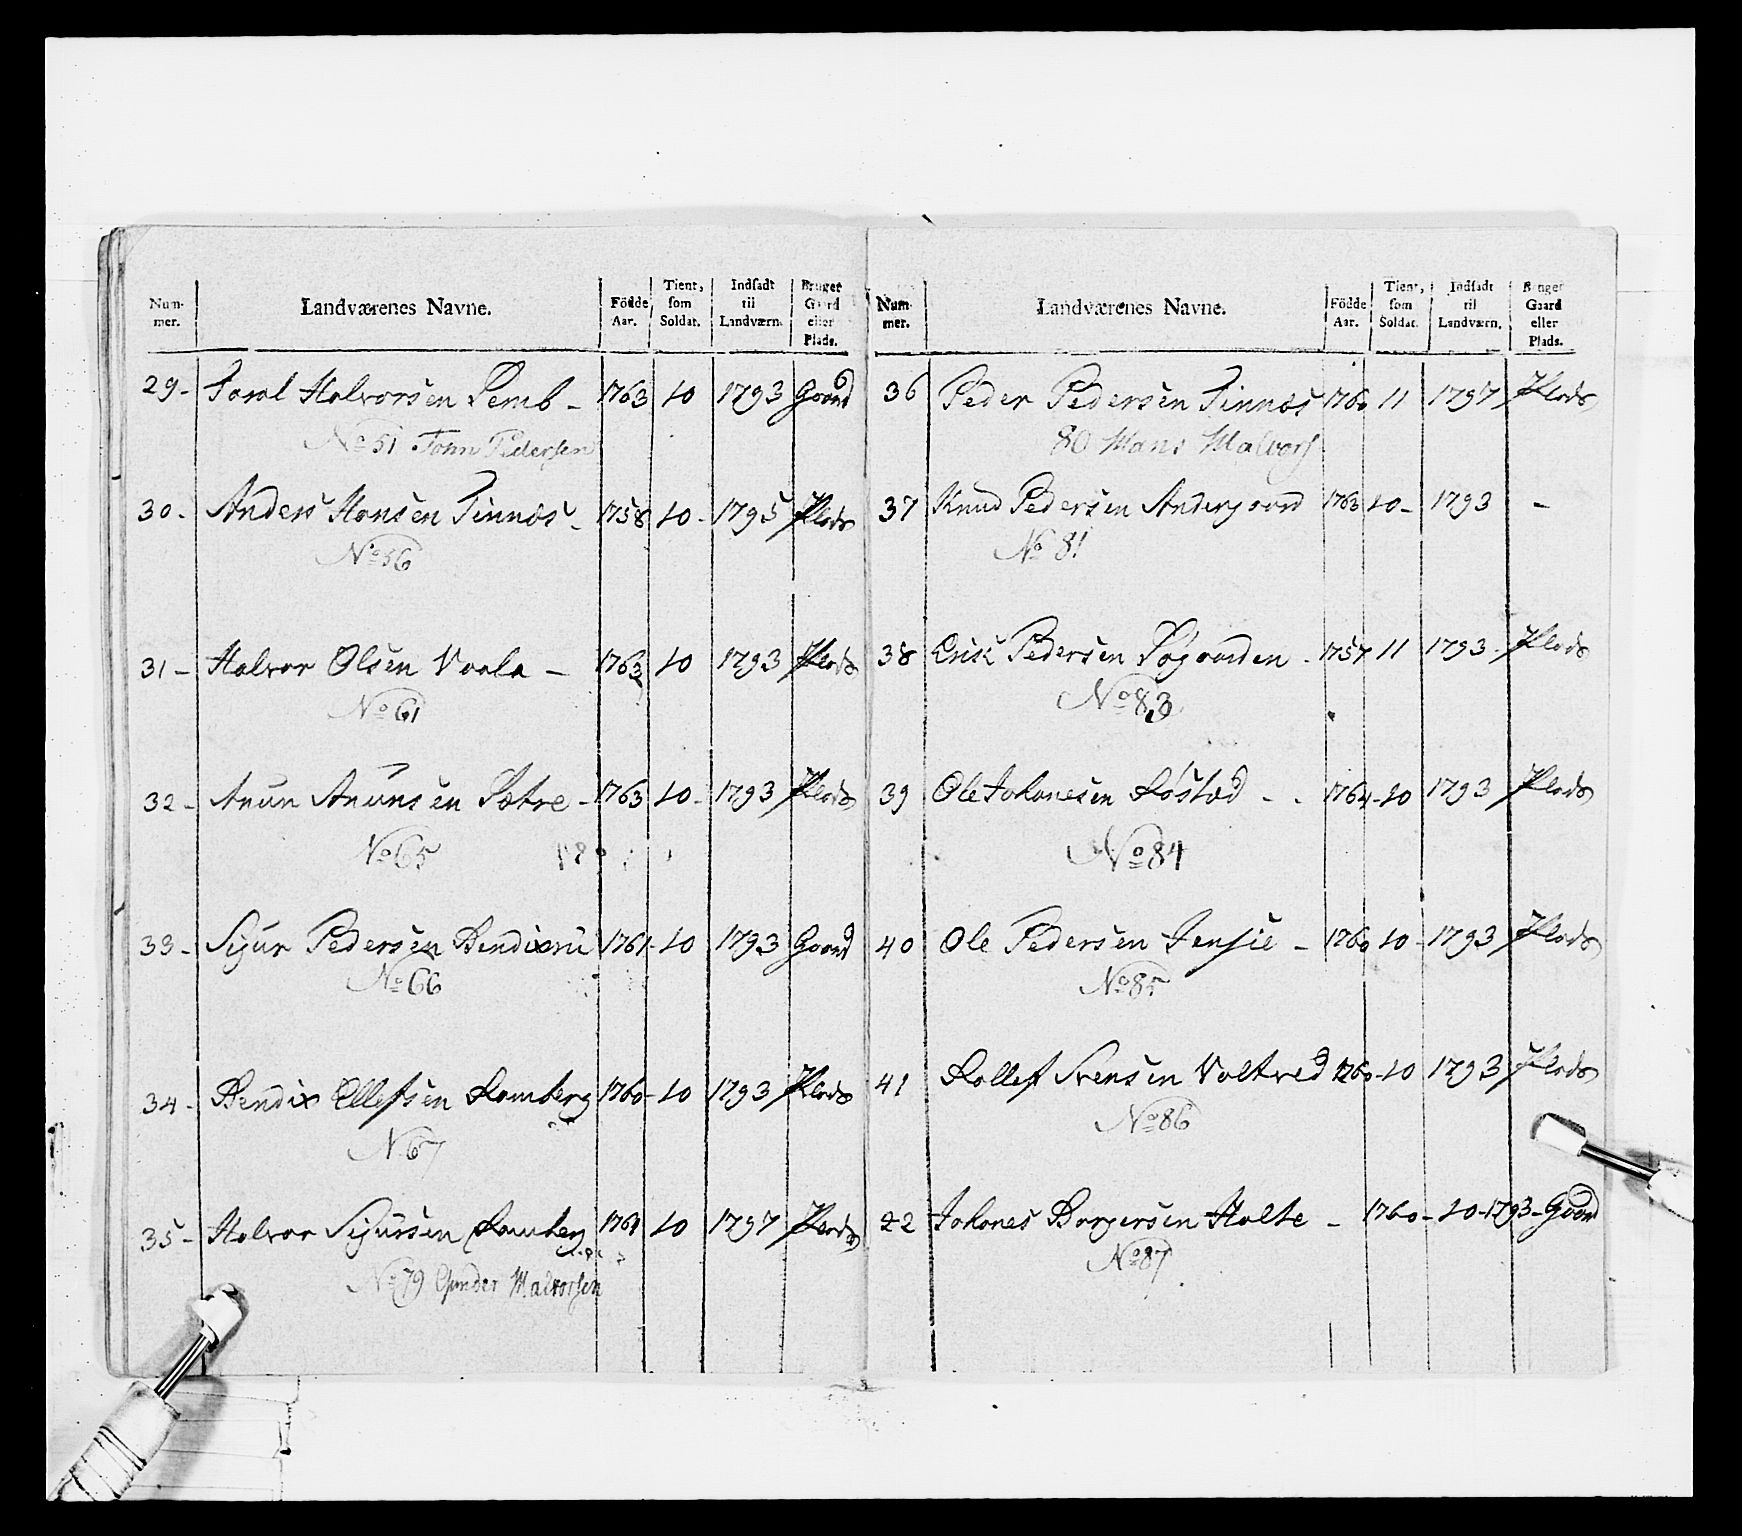 Num-
mer.
Landværenes Navne.
Födde
Aar.
Tient,
som
Soldat.
Indsadt
til
Landværn.
Bruger
Gaard
eller
Plads.
29- Torol Halvorsen Semb - 1763 10 1793 Gaard
No 51 John Pedersen
30- Anders Hansen Tinnæs - 1758 10- 1795 Plads
No 56
31- Halvor Olsen Vaala - 1763 10 1793 Plads
No 61
32- Anun Anunsen Sætre - 1763 10- 1793 Plads
No 65
33- Sijur Pedersen Bendixrü 1761- 10 1793 Gaard
No 66
34- Bendix Ellefsen Romberg 1760- 10 1793 Plads
N 67
35- Halvor Sijursen Romberg 1761 10 1797 Plads
No 79 Gunder Halvorsen
Num-
mer.
Landværenes Navne.
Födde
Aar.
Tient,
som
Soldat.
Indsadt
til
Landværn.
Bruger
Gaard
eller
Plads.
36 Peder Pedersen Tinnæs 1760 11 1797 Plads
80 Hans Halvors
37 Knud Pedersen Andergaard 1763 10- 1793 -
No 81
38 Erick Pedersen Søgaarden - 1757 11 1793 - Plads
No 83
39 Ole Johanesen Røstad - - 1764-10 1793 Plads
No 84
40 Ole Pedersen - 1760 10- 1793 Plads
No 85
41 Rollef Svensen 1760-10 1793 Plads
No 86
22 Johanes Borgersen Holte - 1760-10-1793-Gaard
No 87